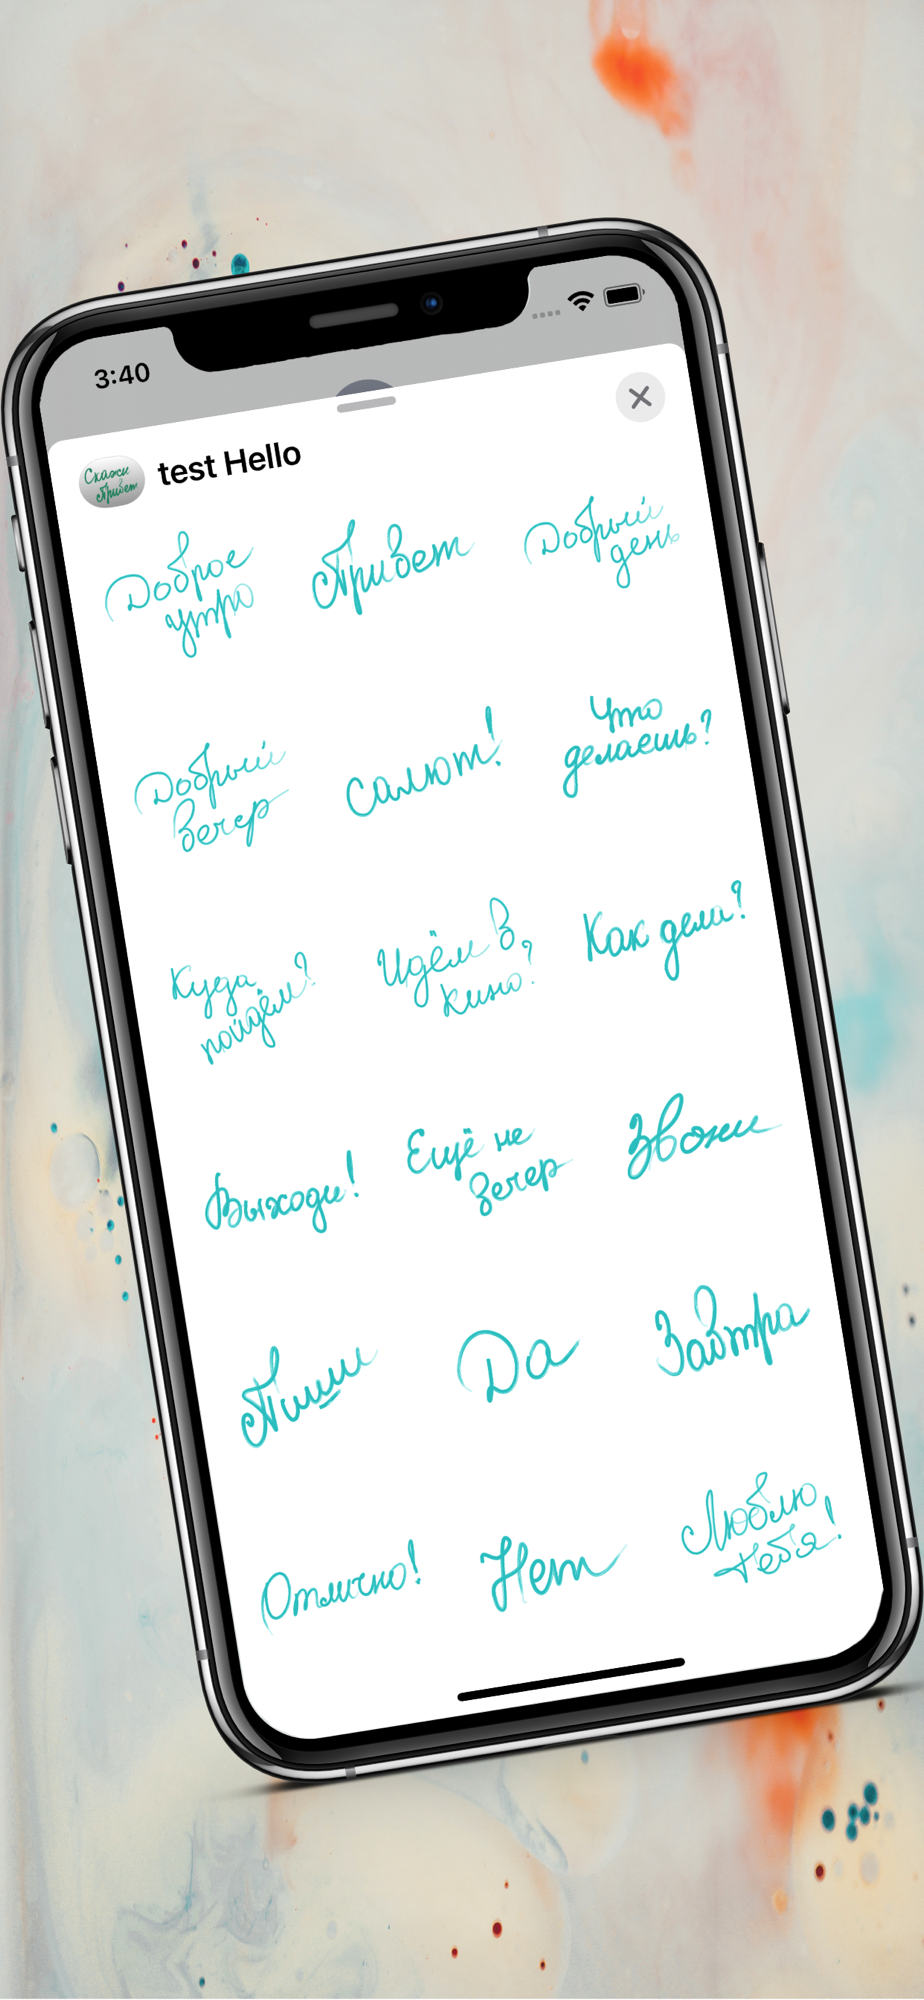 3:40
Скажи
Привет
test Hello
Доброе
утро
Привет
Добрый
день
Добрый
вечер
Салют!
Что
делаешь?
Куда
пойдём?
Идём в
кино?
Как дела?
Выходи!
Ещё не
вечер
Звони
Пиши
Да
Завтра
Отлично!
Нет
Люблю
тебя!